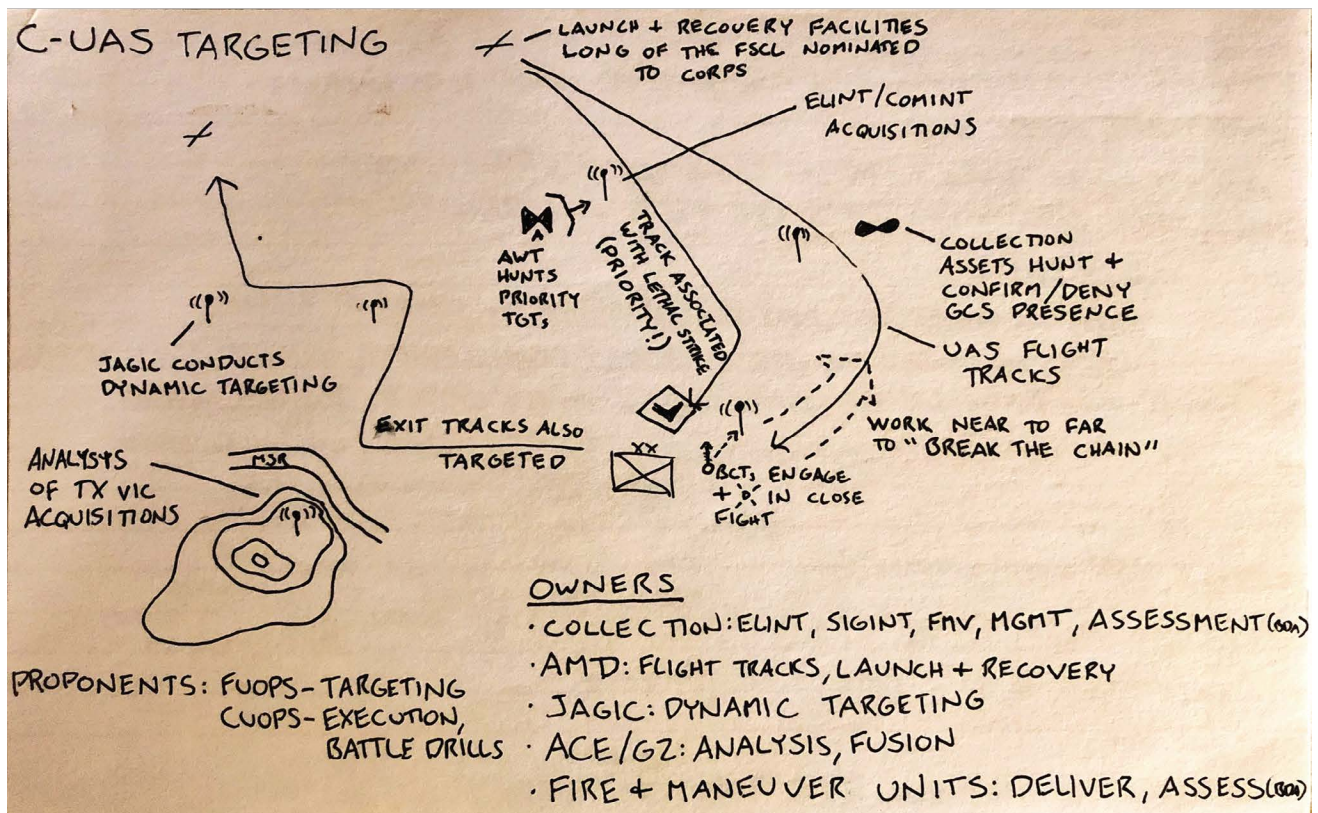 C-UAS TARGETING
LAUNCH + RECOVERY FACILITIES
LONG OF THE FSCL NOMINATED
TO CORPS
ELINT/COMINT
ACQUISITIONS
AWT
HUNTS
PRIORITY
TGTs
TRACK ASSOCIATED
WITH LETHAL STRIKE
(PRIORITY!)
COLLECTION
ASSETS HUNT +
CONFIRM/DENY
GCS PRESENCE
UAS FLIGHT
TRACKS
JAGIC CONDUCTS
DYNAMIC TARGETING
EXIT TRACKS ALSO
TARGETED
WORK NEAR TO FAR
TO "BREAK THE CHAIN"
XX
BCTs ENGAGE
+ IN CLOSE
FIGHT
ANALYSYS
OF TX VIC
ACQUISITIONS
MSR
OWNERS
· COLLECTION: ELINT, SIGINT, FMV, MGMT, ASSESSMENT (BDA)
· AMD: FLIGHT TRACKS, LAUNCH + RECOVERY
· JAGIC: DYNAMIC TARGETING
· ACE/G2: ANALYSIS, FUSION
· FIRE + MANEUVER UNITS: DELIVER, ASSESS (BDA)
PROPONENTS: FUOPS - TARGETING
CUOPS - EXECUTION,
BATTLE DRILLS